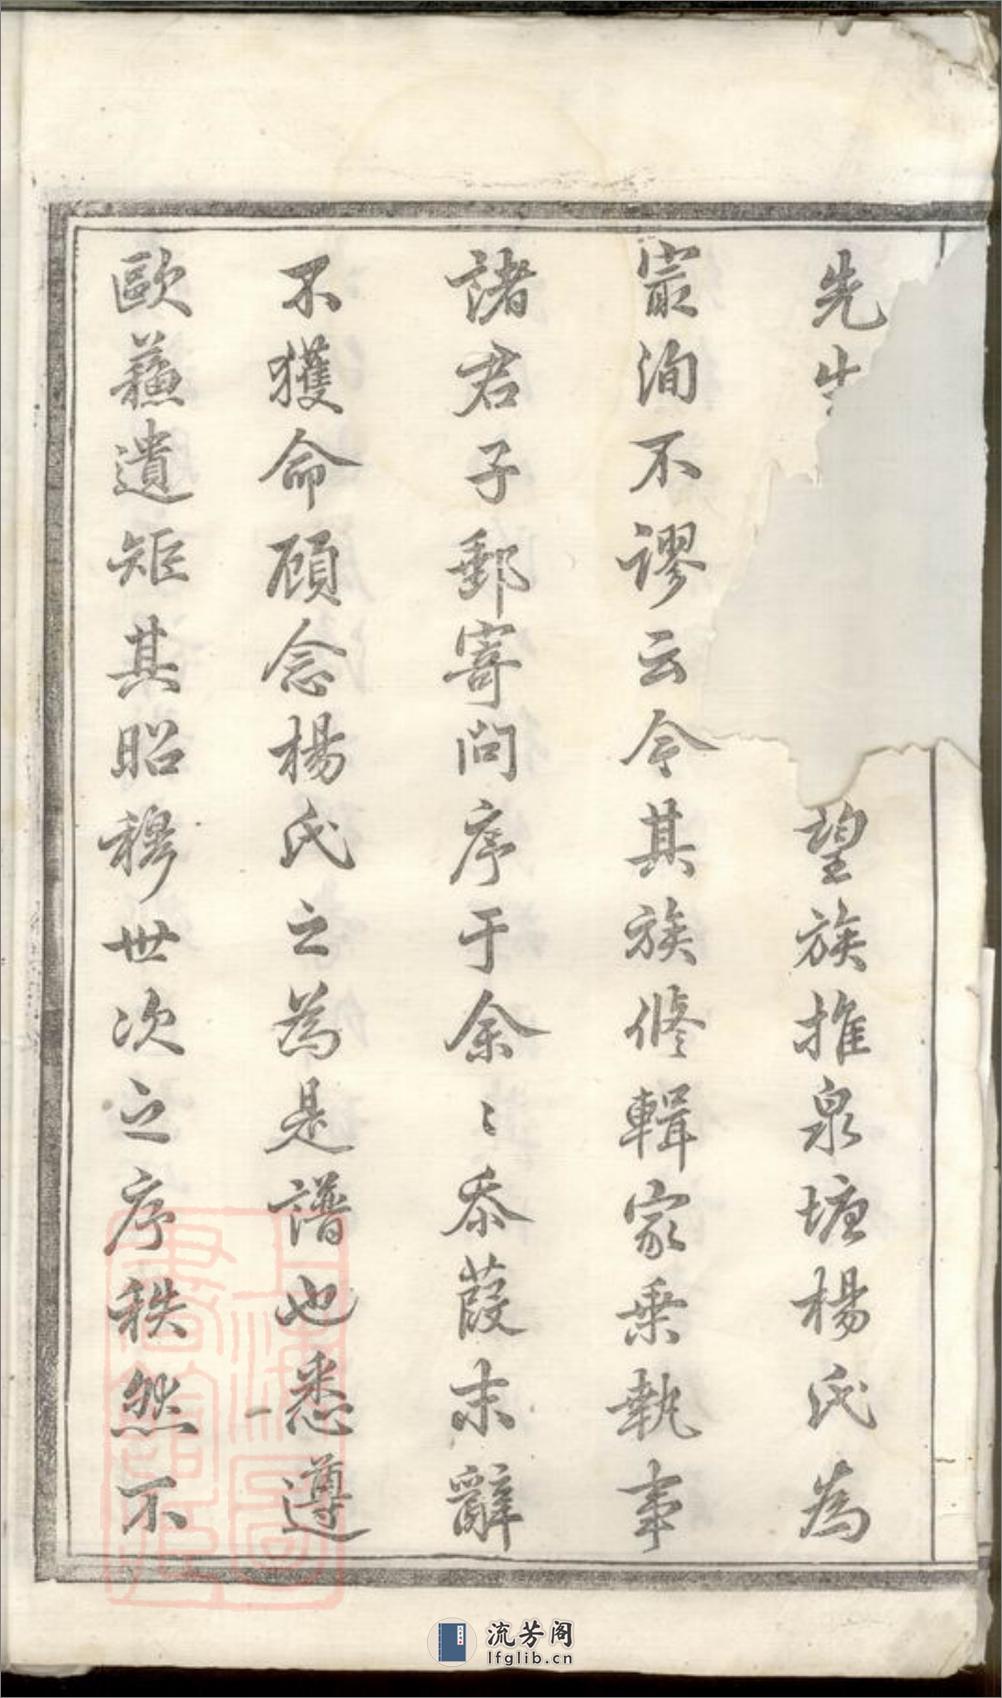 先生望族推泉塘楊氏為
㝡洵不謬云今其族修輯家乗執事
諸君子郵寄問序于余〻忝葭末辭
不獲命顧念楊氏之為是譜也悉遵
歐蘇遺矩其昭穆世次之序秩然不
流芳阁
lfglib.cn